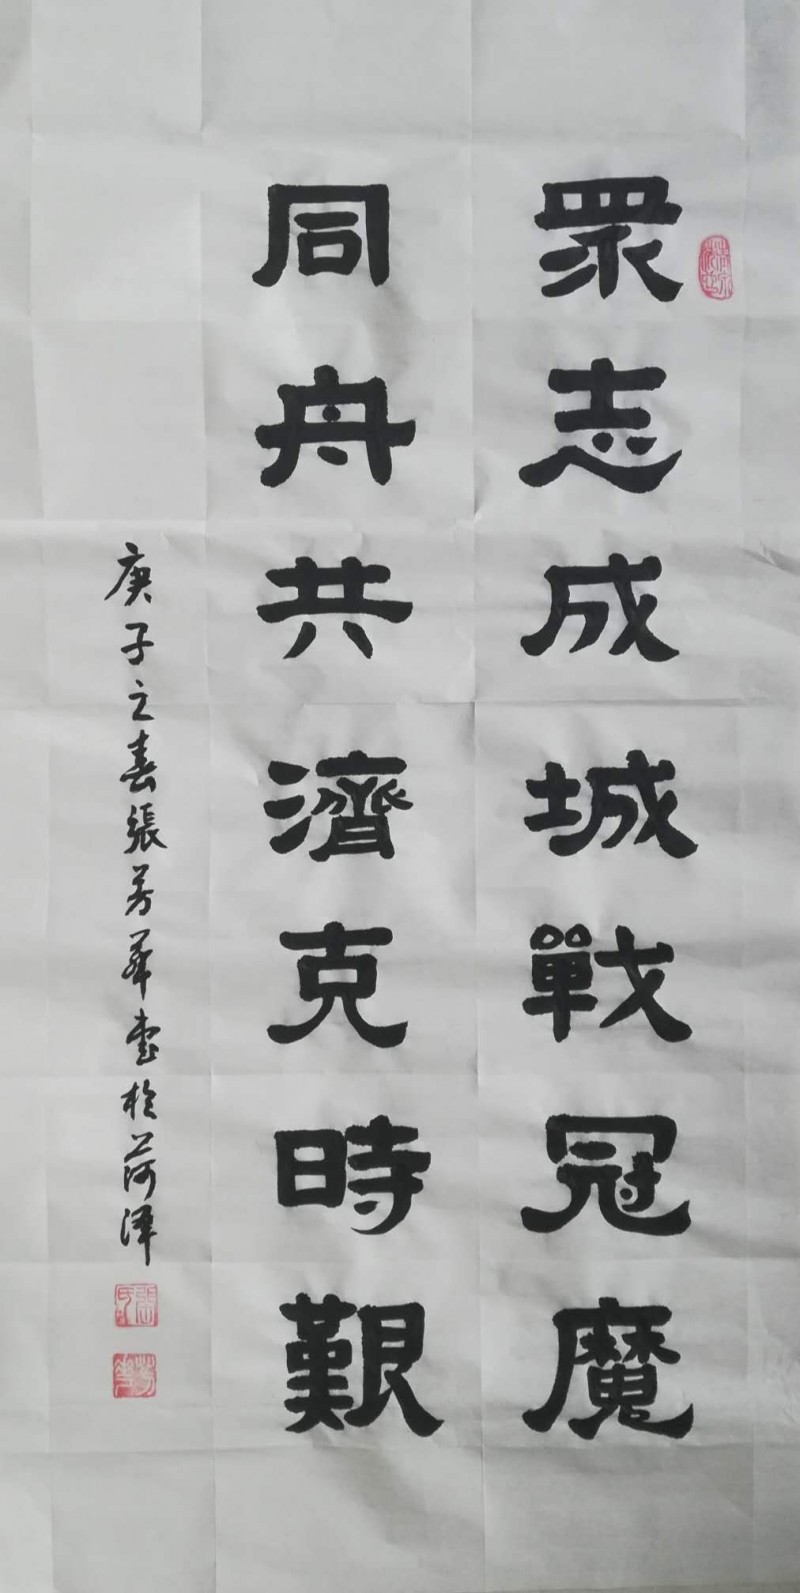 眾志成城戰冠魔
同舟共濟克時艱
庚子之春張芳華書於菏澤